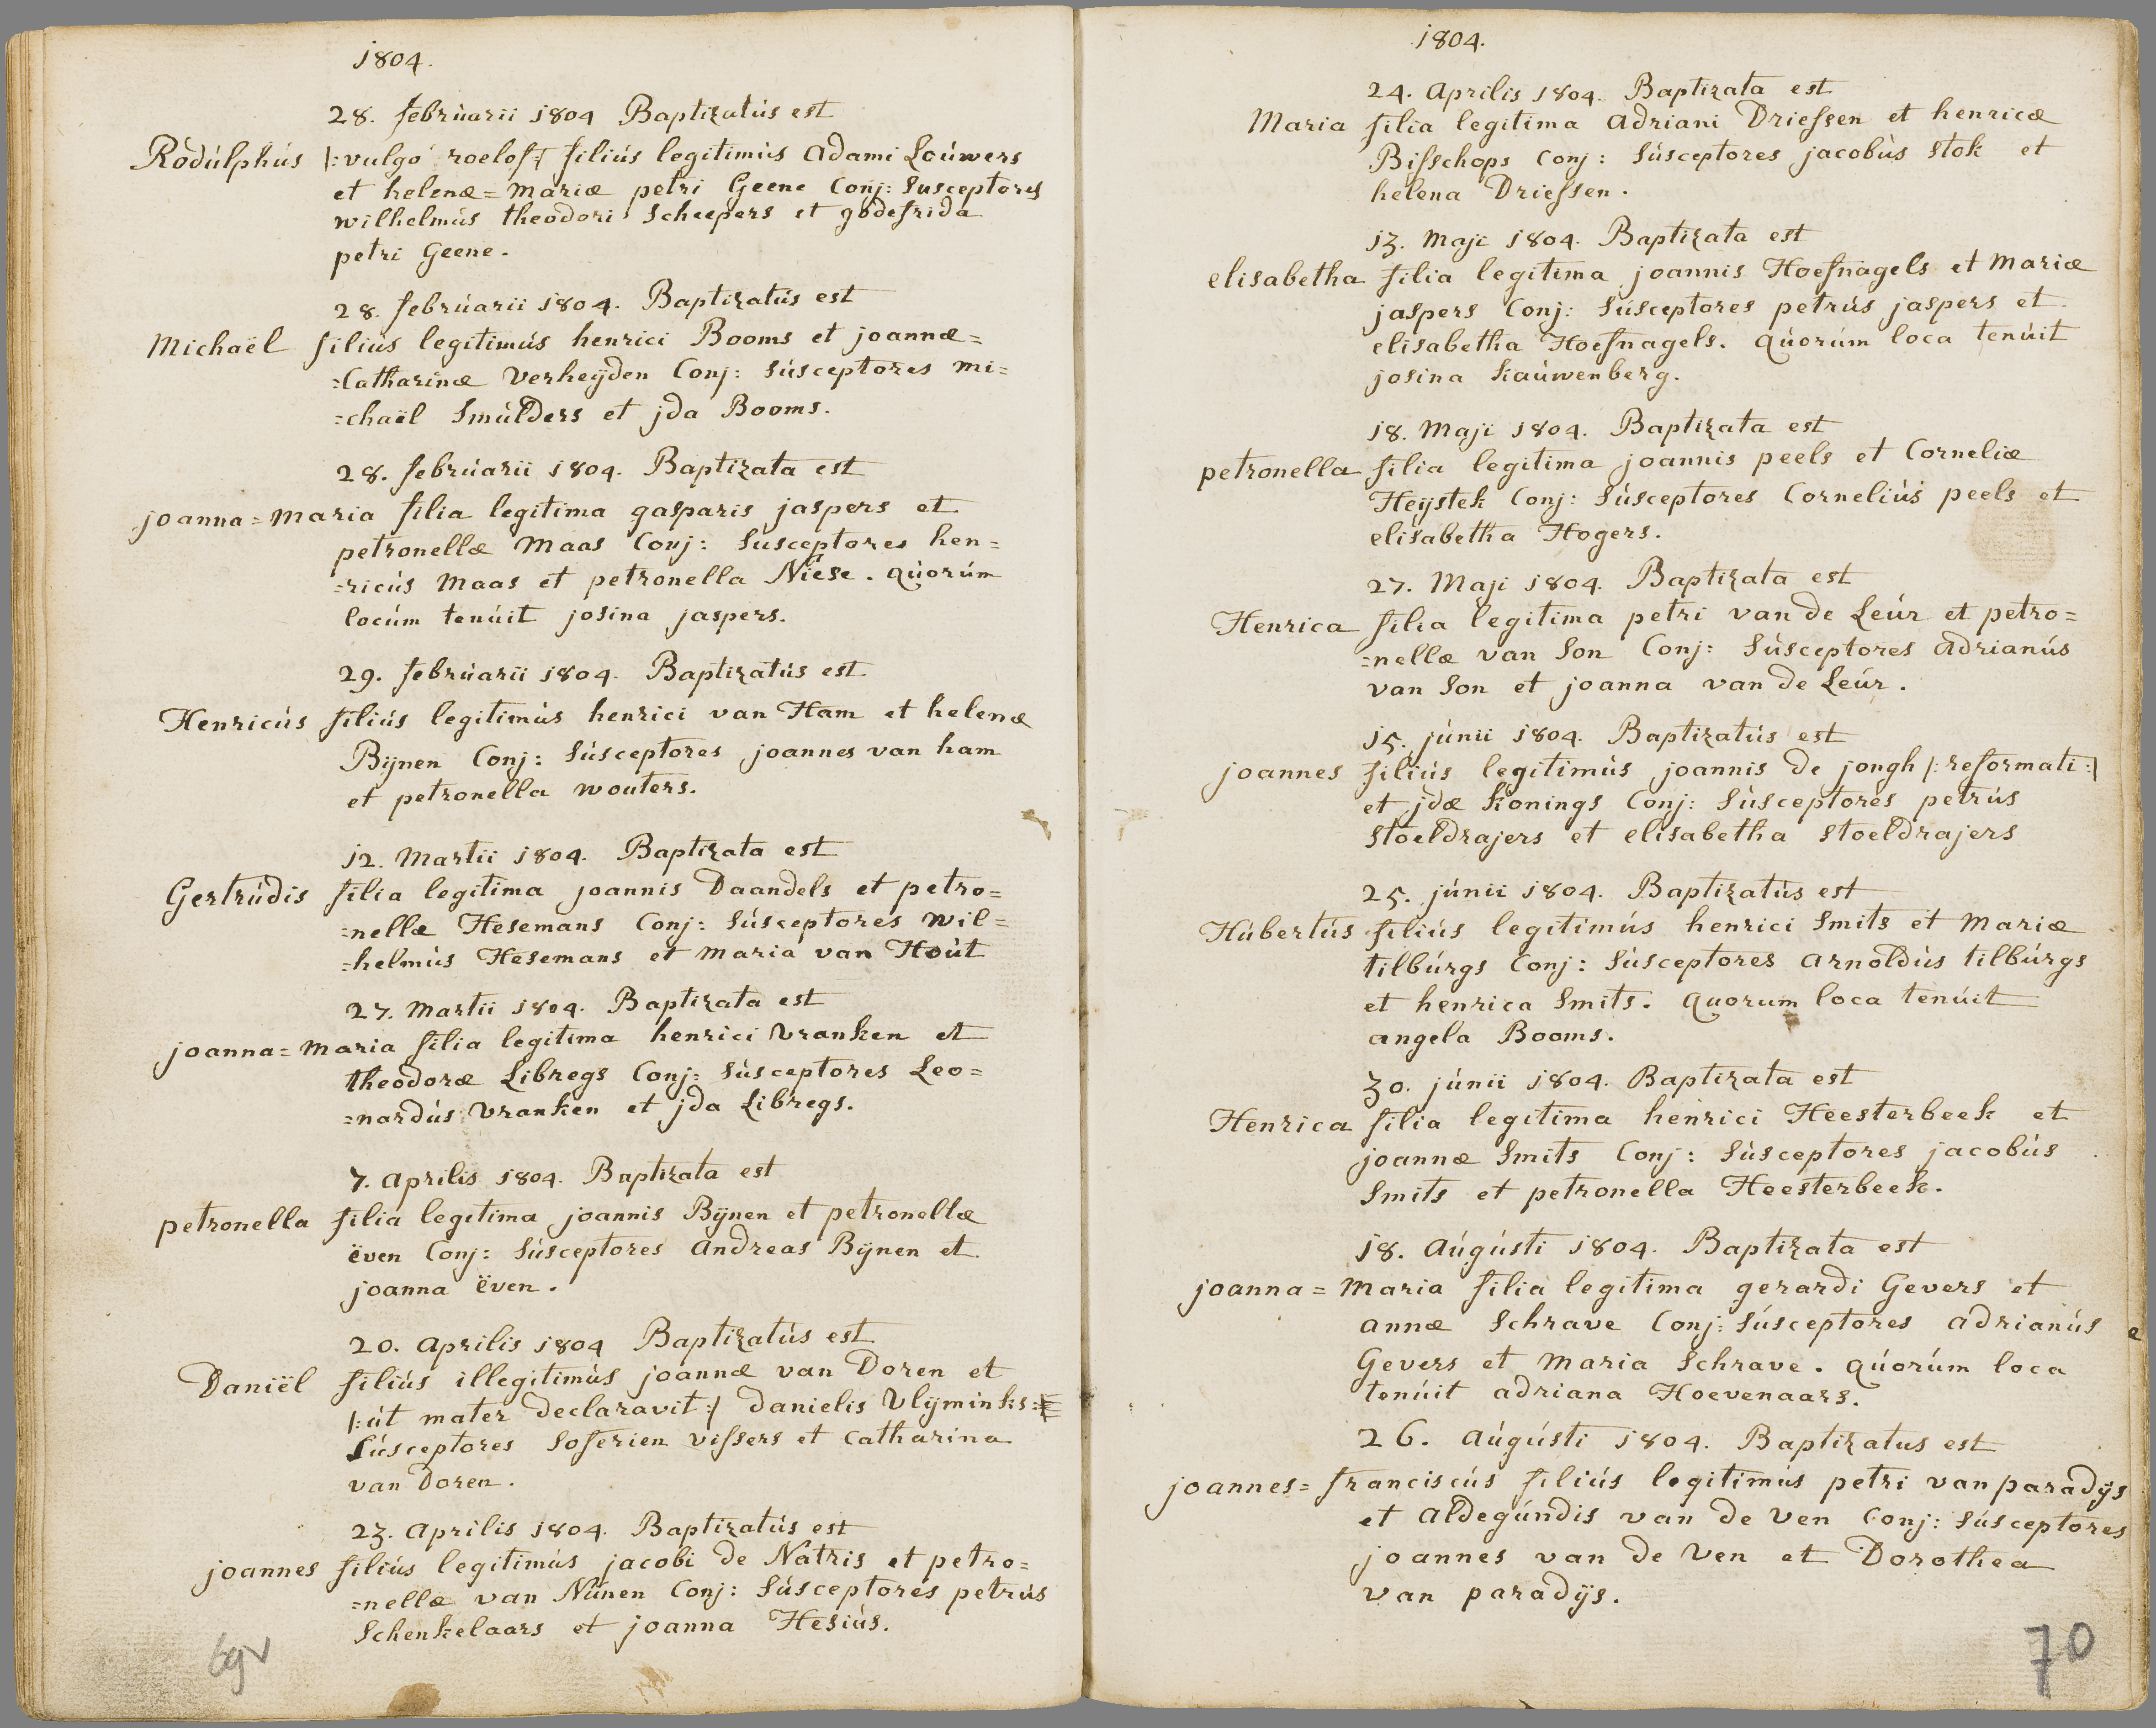 1804.
28. februarii 1804 Baptizatus est
Rodulphus |: vulgo roelof :| filius legitimus Adami Louwers
et helenæ = mariæ petri Geene Conj: Susceptores
wilhelmus theodori scheepers et godefrida
petri Geene.
28. februarii 1804. Baptizatus est
Michaël filius legitimus henrici Booms et joannæ =
=Catharinæ Verheÿden Conj: Susceptores mi=
=chaël Smulders et jda Booms.
28. februarii 1804. Baptizata est
joanna = maria filia legitima gasparis jaspers et
petronellæ Maas Conj: Susceptores hen=
=ricus Maas et petronella Niese. quorum
locum tenuit josina jaspers.
29. februarii 1804. Baptizatus est
Henricus filius legitimus henrici van Ham et helenæ
Bÿnen Conj: Susceptores joannes van ham
et petronella wouters.
12. Martii 1804. Baptizata est
Gertrudis filia legitima joannis Daandels et petro=
=nellæ Hesemans Conj: Susceptores wil=
=helmus Hesemans et maria van Hout
27. Martii 1804. Baptizata est
joanna = maria filia legitima henrici Vranken et
theodoræ Libregs Conj: Susceptores Leo=
=nardus Vranken et jda Libregs.
7. Aprilis 1804. Baptizata est
petronella filia legitima joannis Bÿnen et petronellæ
ëven Conj: Susceptores Andreas Bÿnen et
joanna ëven.
20. Aprilis 1804 Baptizatus est
Daniël filius illegitimus joannæ van Doren et
|: ut mater declaravit :| danielis Vlÿminks
Susceptores Soferien vissers et catharina
van Doren.
23. Aprilis 1804. Baptizatus est
joannes filius legitimus jacobi de Natris et petro=
=nellæ van Nunen Conj: Susceptores petrus
Schenkelaars et joanna Hesius.
69v
1804.
24. Aprilis 1804. Baptizata est
Maria filia legitima Adriani Driessen et henricæ
Bisschops Conj: Susceptores jacobus stok et
helena Driessen.
13. Maji 1804. Baptizata est
elisabetha filia legitima joannis Hoefnagels et Mariæ
jaspers Conj: Susceptores petrus jaspers et
elisabetha Hoefnagels. quorum loca tenuit
josina Kauwenberg.
18. Maji 1804. Baptizata est
petronella filia legitima joannis peels et Corneliæ
Heÿstek Conj: Susceptores Cornelius peels et
elisabetha Hogers.
27. Maji 1804. Baptizata est
Henrica filia legitima petri van de Leur et petro=
=nellæ van Son Conj: Susceptores Adrianus
van Son et joanna van de Leur.
15. junii 1804. Baptizatus est
joannes filius legitimus joannis de jongh |: reformati :|
et jdæ Konings Conj: Susceptores petrus
stoeldrajers et elisabetha stoeldrajers
25. junii 1804. Baptizatus est
Hubertus filius legitimus henrici Smits et Mariæ
tilburgs Conj: Susceptores Arnoldus tilburgs
et henrica Smits. quorum loca tenuit
angela Booms.
30. junii 1804. Baptizata est
Henrica filia legitima henrici Heesterbeek et
joannæ Smits Conj: Susceptores jacobus
Smits et petronella Heesterbeek.
18. Augusti 1804. Baptizata est
joanna = Maria filia legitima gerardi Gevers et
annæ Schrave Conj: Susceptores Adrianus
Gevers et Maria Schrave. quorum loca
tenuit adriana Hoevenaars.
26. Augusti 1804. Baptizatus est
joannes = franciscus filius legitimus petri van paradÿs
et Aldegundis van de Ven Conj: Susceptores
joannes van de Ven et Dorothea
van paradÿs.
70